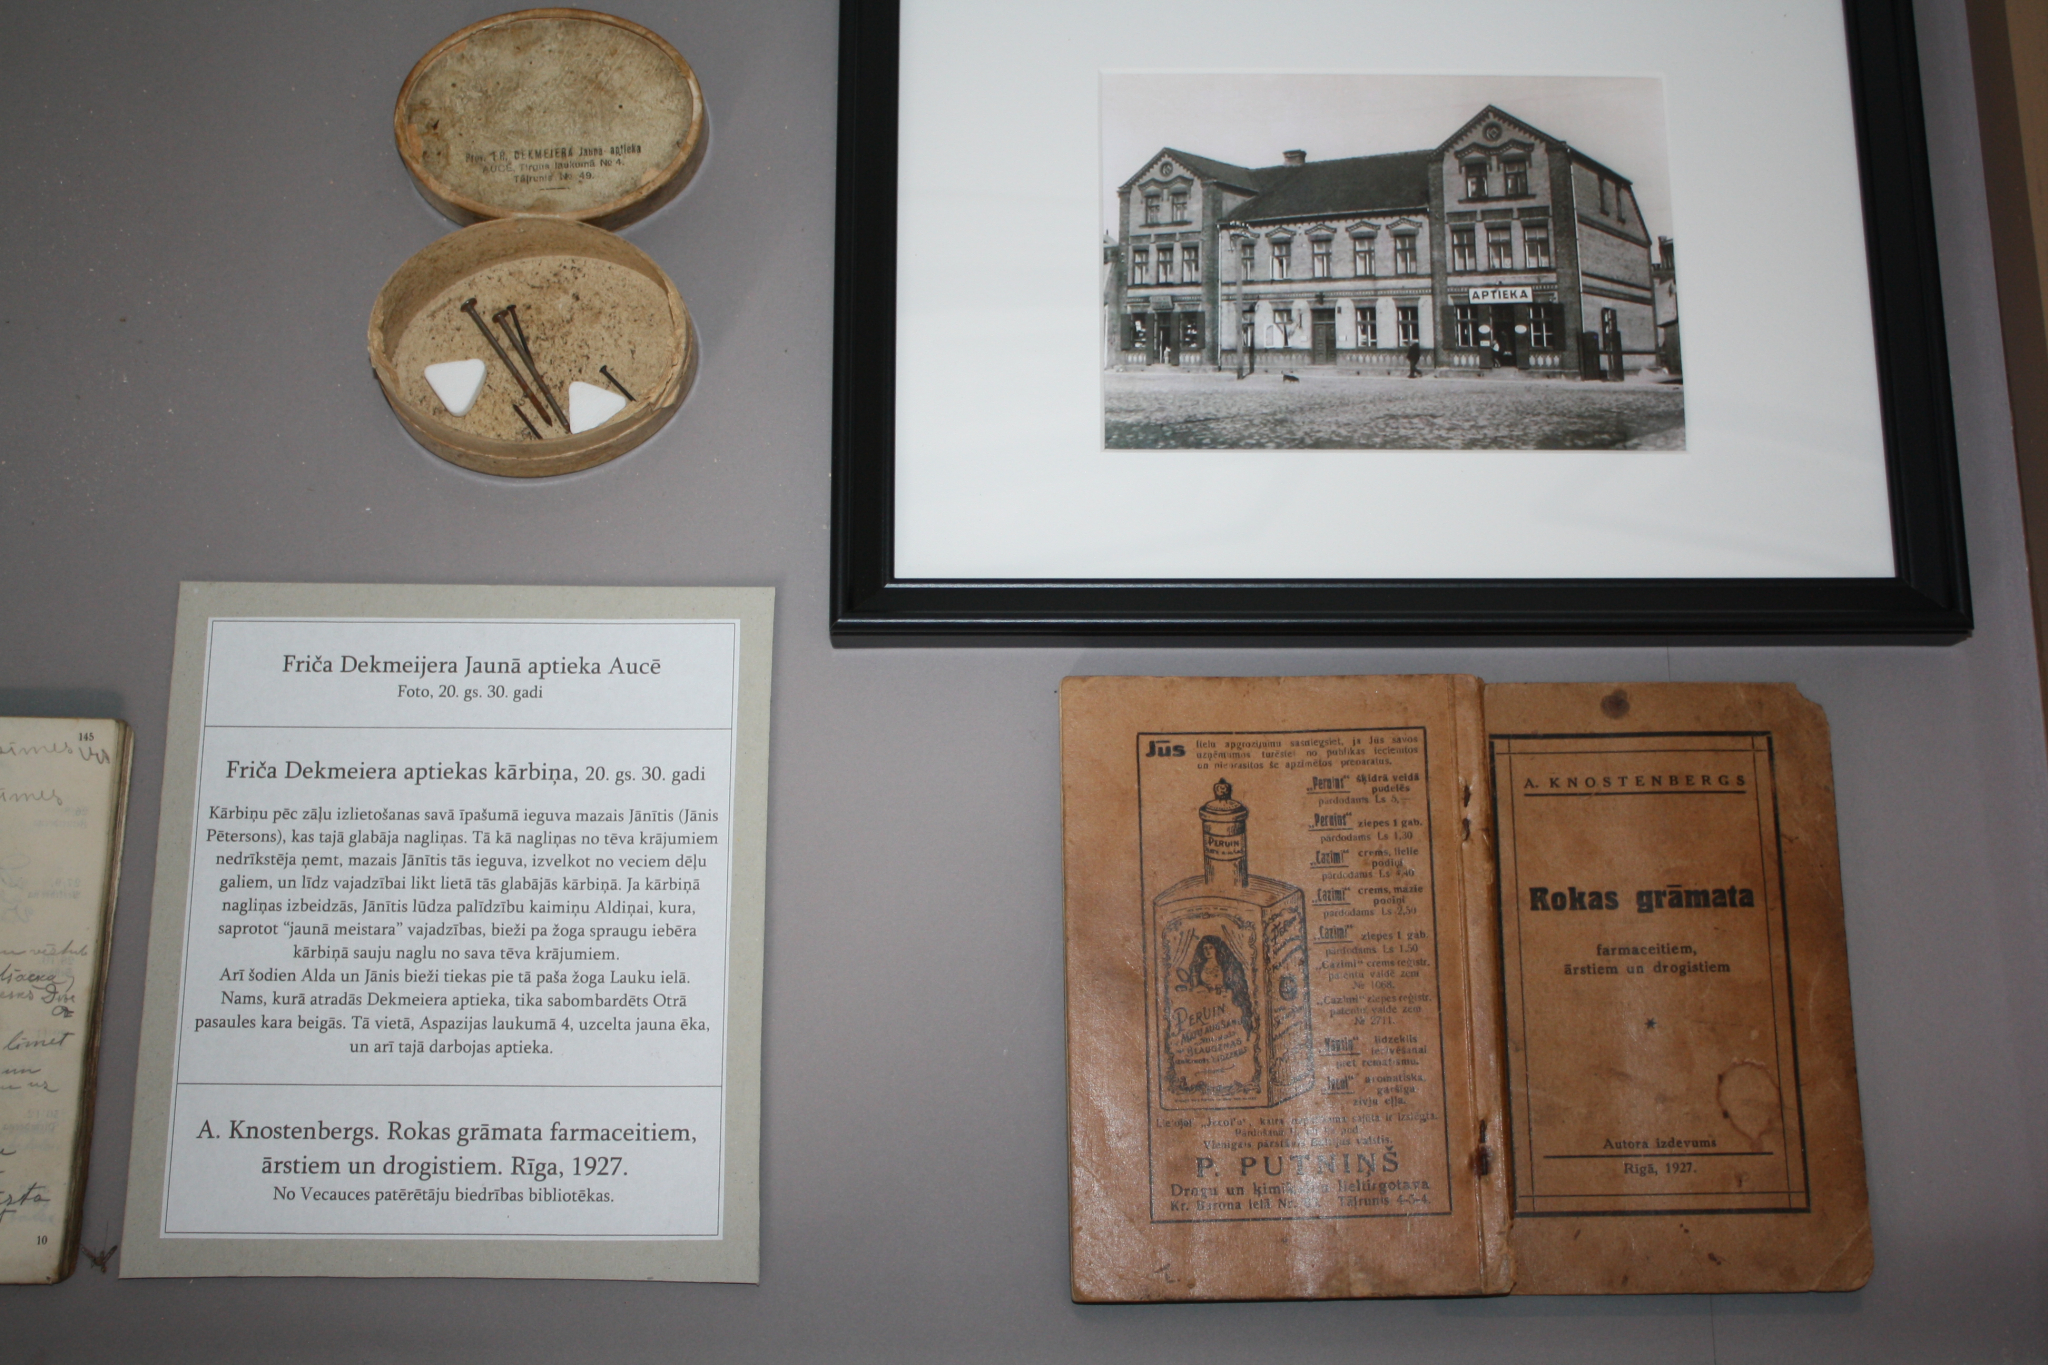 Prov. FR. DEKMEIERA Jauna aptieka
AUCĒ, Tirgus laukumā № 4.
Tālrunis № 49.
APTIEKA
Friča Dekmeijera Jaunā aptieka Aucē
Foto, 20. gs. 30. gadi
Friča Dekmeiera aptiekas kārbiņa, 20. gs. 30. gadi
Kārbiņu pēc zāļu izlietošanas savā īpašumā ieguva mazais Jānītis (Jānis
Pētersons), kas tajā glabāja nagliņas. Tā kā nagliņas no tēva krājumiem
nedrīkstēja ņemt, mazais Jānītis tās ieguva, izvelkot no veciem dēļu
galiem, un līdz vajadzībai likt lietā tās glabājās kārbiņā. Ja kārbiņā
nagliņas izbeidzās, Jānītis lūdza palīdzību kaimiņu Aldiņai, kura,
saprotot “jaunā meistara” vajadzības, bieži pa žoga spraugu iebēra
kārbiņā sauju naglu no sava tēva krājumiem.
Arī šodien Alda un Jānis bieži tiekas pie tā paša žoga Lauku ielā.
Nams, kurā atradās Dekmeiera aptieka, tika sabombardēts Otrā
pasaules kara beigās. Tā vietā, Aspazijas laukumā 4, uzcelta jauna ēka,
un arī tajā darbojas aptieka.
A. Knostenbergs. Rokas grāmata farmaceitiem,
ārstiem un drogistiem. Rīga, 1927.
No Vecauces patērētāju biedrības bibliotēkas.
145
limet
un
10
Jūs lielu apgrozījumu sasniegsiet, ja Jūs savos
uzņēmumos turēsiet no publikas iecienītos
un nieprasītos še apzīmētos preparatus.
„Peruin" šķidrā veidā
pudelēs
pārdodams Ls 5,—
„Peruin" ziepes 1 gab.
pārdodams Ls 1,30
„Cazimi" crems, lielie
podiņi
pārdodams Ls 4,40
„Cazimi" crems, mazie
podiņi
pārdodams Ls 2,50
„Cazimi" ziepes 1 gab.
pārdodams Ls 1.50
„Cazimi" crems reģistr.
patentu valdē zem
№ 1068.
„Cazimi" ziepes reģistr.
patentu valdē zem
№ 2711.
līdzeklis
ierīvēšanai
pret reimatismu.
aromatiska,
garšīga
zivju eļļa.
PERUIN
PERUIN
P. PUTNIŅŠ
Drogu un ķimikaliju lieltirgotava
Kr. Barona ielā Nr. Tālrunis 4-5-4.
A. KNOSTENBERGS
Rokas grāmata
farmaceitiem,
ārstiem un drogistiem
*
Autora izdevums
Rīgā, 1927.